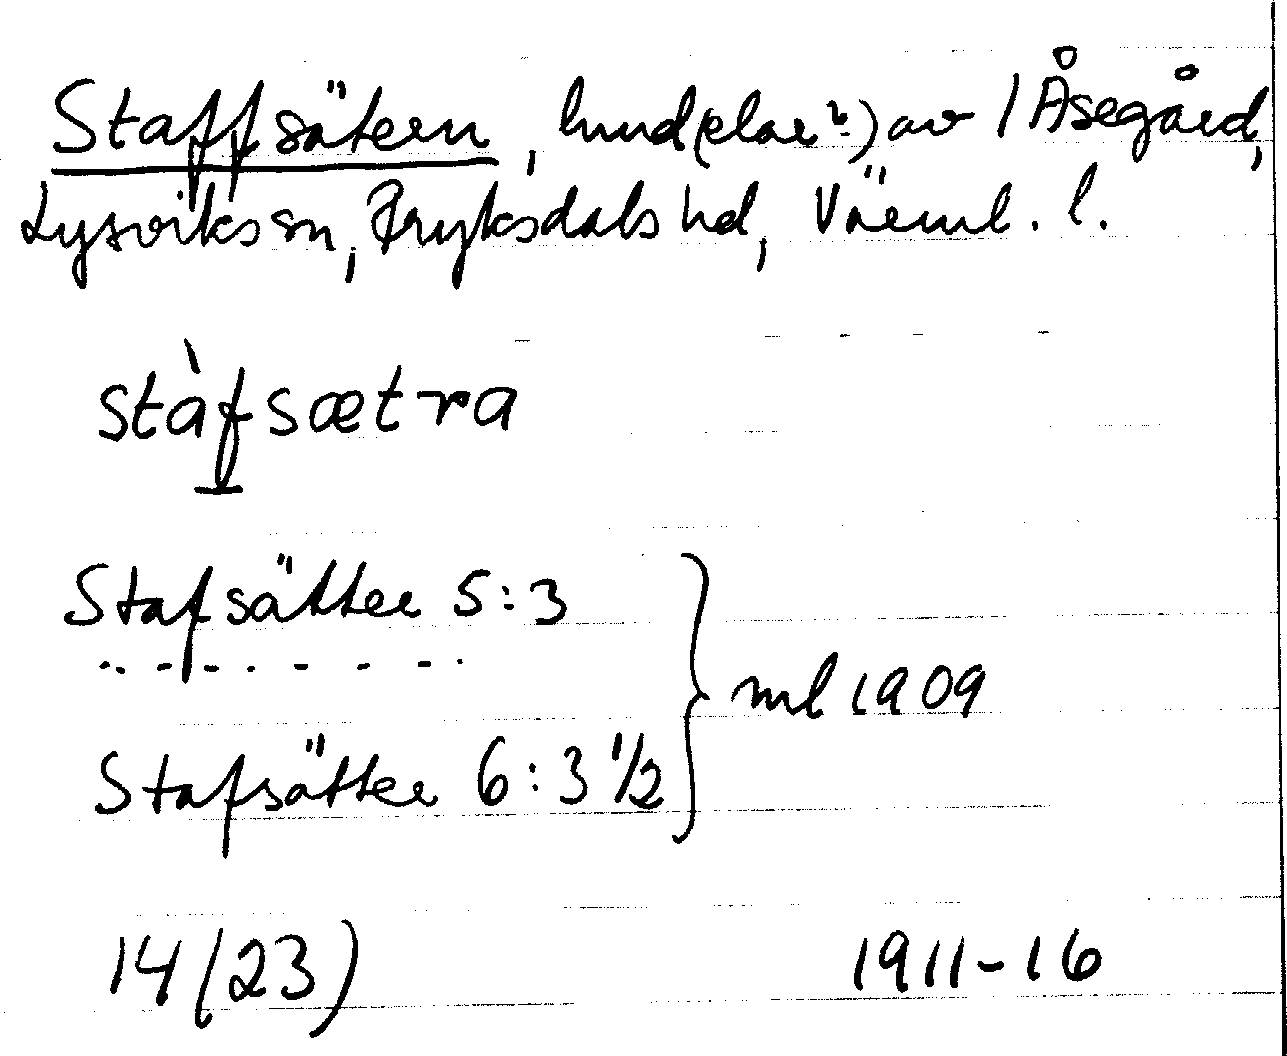 Staffsätern, hmd(elar?) av 1 Åsegård,
Lysviks sn, Fryksdals hd, Värml. l.
stàfsætra
Stafsätter 5:3
Stafsätter 6:3 1/2
ml 1909
14(23) 1911-16